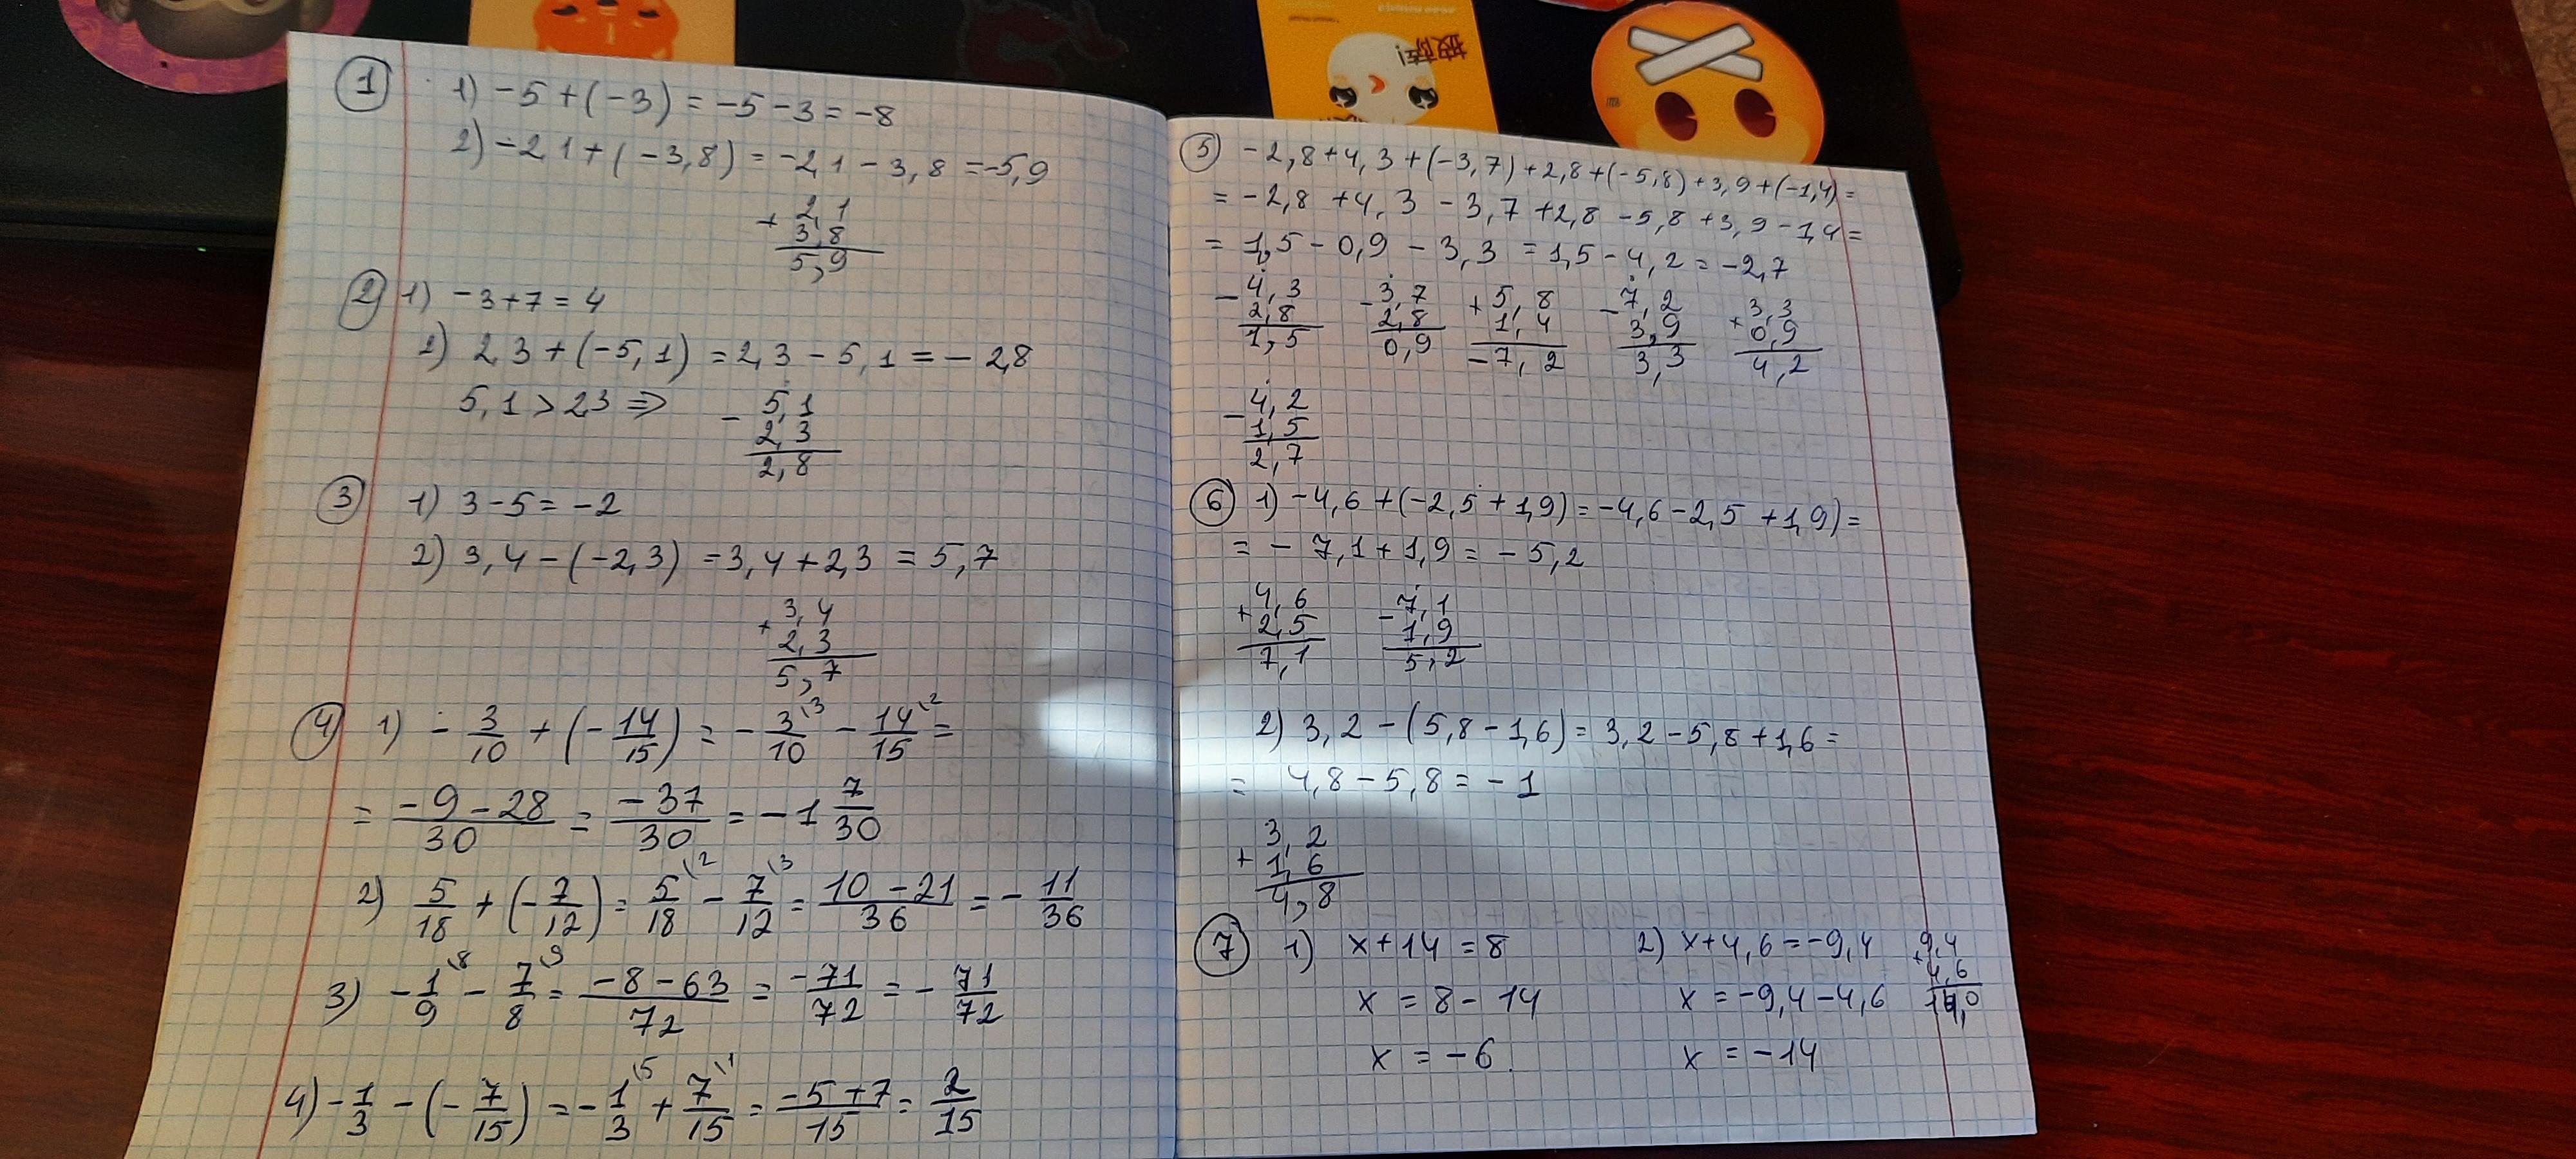 1
1) -5+(-3) = -5-3 = -8
2) -2,1+(-3,8) = -2,1-3,8 = -5,9
+ 2,1
3,8
5,9
2 1) -3+7=4
2) 2,3+(-5,1) = 2,3-5,1 = -2,8
5,1 > 2,3 ⇒ - 5,1
2,3
2,8
3 1) 3-5=-2
2) 3,4-(-2,3) = 3,4+2,3 = 5,7
+ 3,4
2,3
5,7
4 1) - 3/10 + (- 14/15) = - 3\3/10 - 14\2/15 =
= -9-28/30 = -37/30 = -1 7/30
2) 5/18 + (- 7/12) = 5\2/18 - 7\3/12 = 10-21/36 = - 11/36
3) - 1\8/9 - 7\9/8 = -8-63/72 = -71/72 = - 71/72
4) - 1/3 - (- 7/15) = - 1\5/3 + 7\1/15 = -5+7/15 = 2/15
5 -2,8+4,3+(-3,7)+2,8+(-5,8)+3,9+(-1,4)=
= -2,8+4,3-3,7+2,8-5,8+3,9-1,4=
= 1,5-0,9-3,3 = 1,5-4,2 = -2,7
- 4,3 - 3,7 + 5,8 - 7,2 + 3,3
2,8 2,8 1,4 3,9 0,9
1,5 0,9 -7,2 3,3 4,2
- 4,2
1,5
2,7
6 1) -4,6+(-2,5+1,9)=-4,6-2,5+1,9)=
= -7,1+1,9=-5,2
+ 4,6 - 7,1
2,5 1,9
7,1 5,2
2) 3,2-(5,8-1,6)=3,2-5,8+1,6=
= 4,8-5,8=-1
+ 3,2
1,6
4,8
7 1) x+14=8
x=8-14
x=-6
2) x+4,6=-9,4
x=-9,4-4,6
x=-14
+ 9,4
4,6
14,0
披萨i